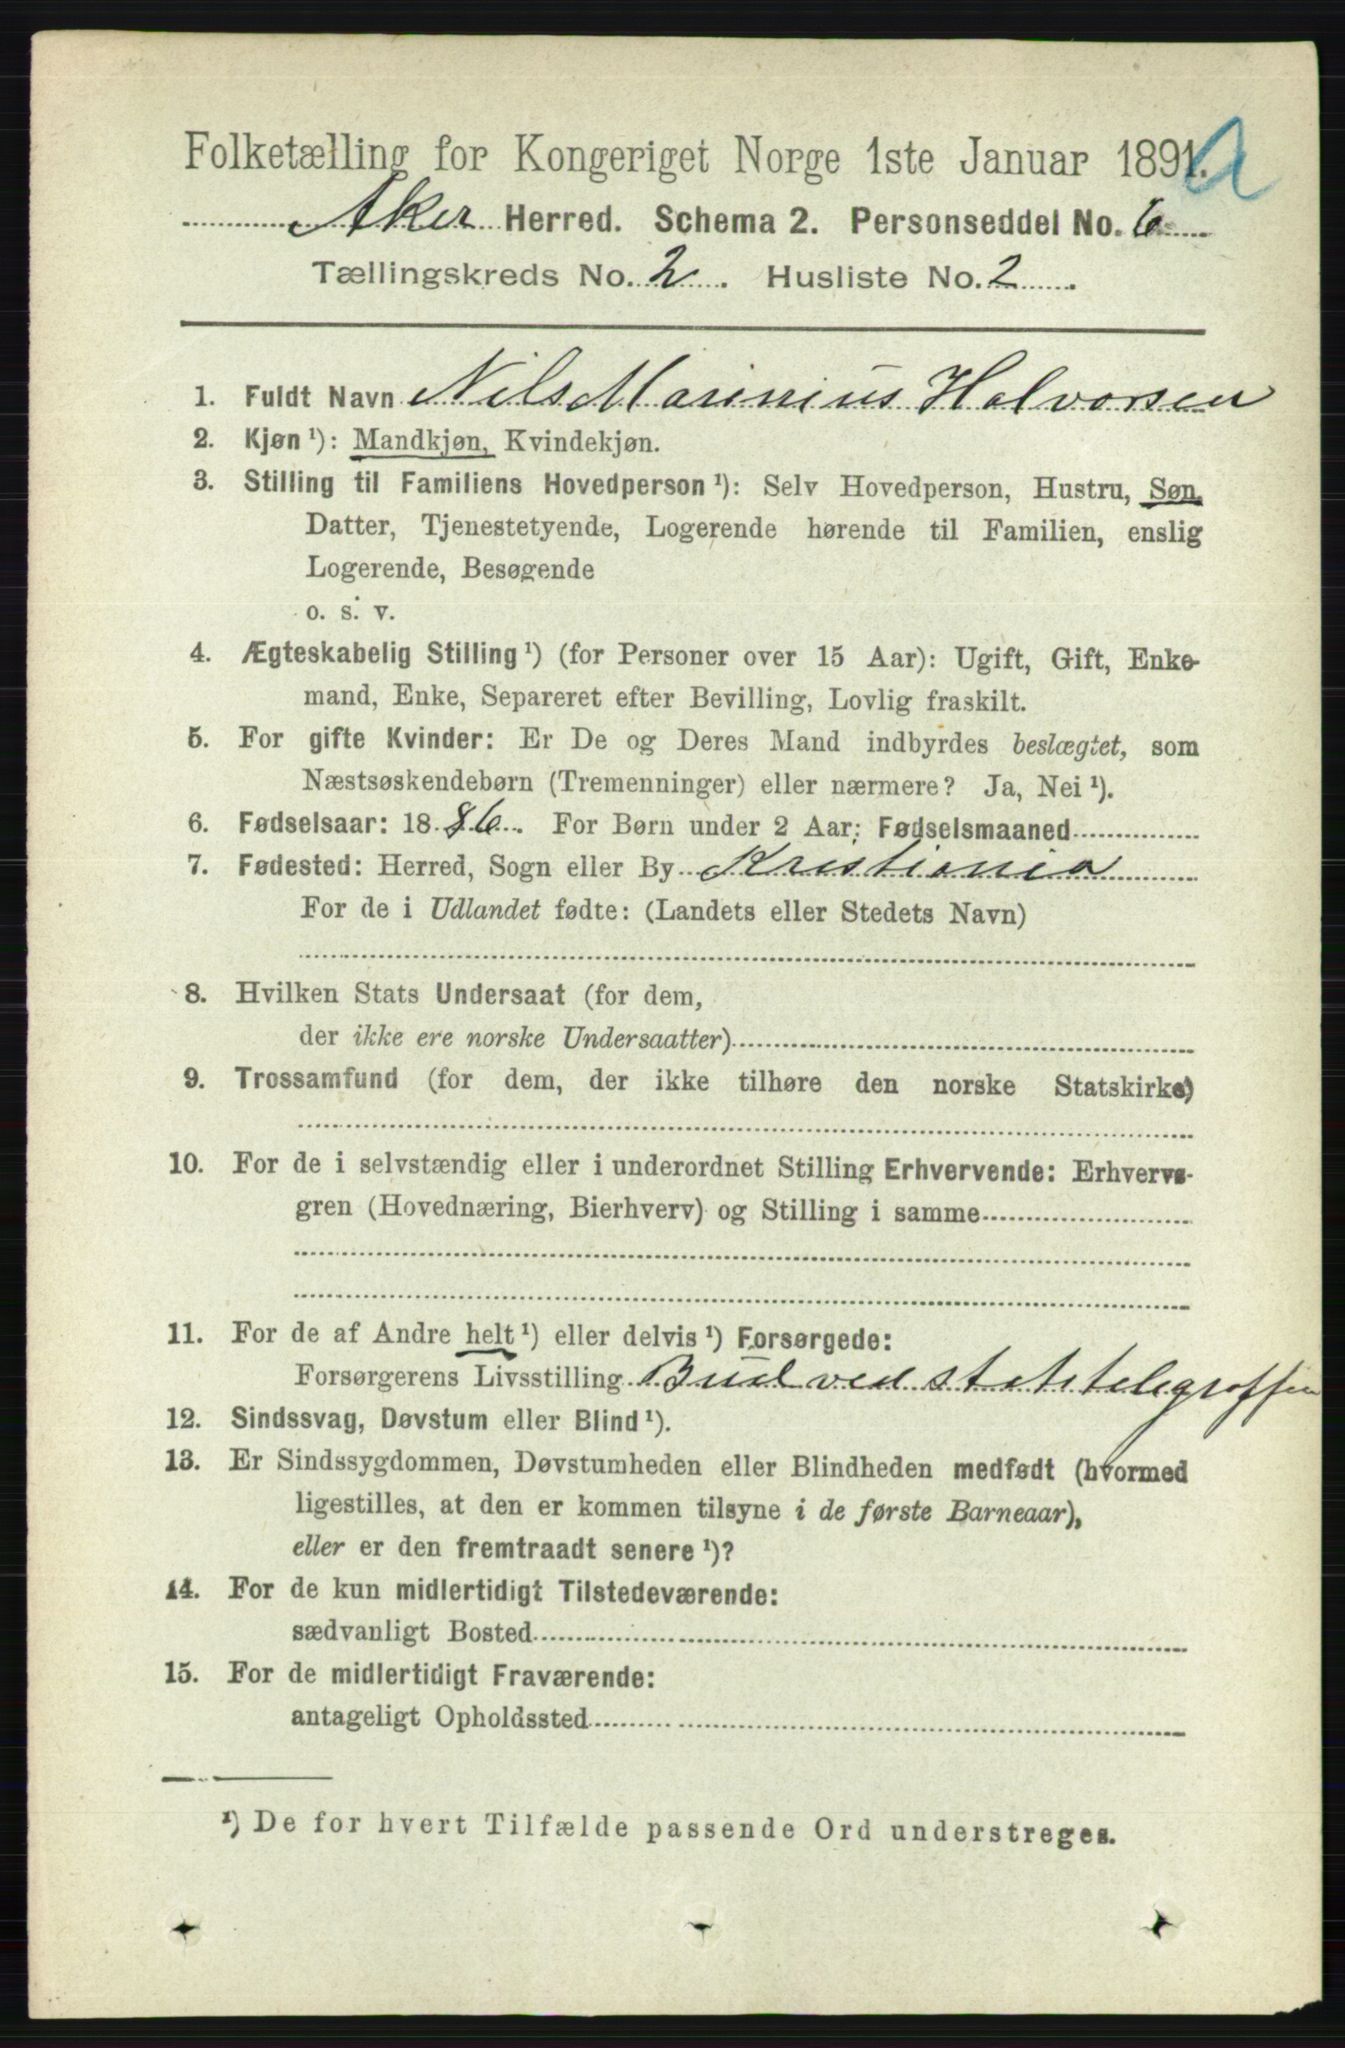 Folketælling for Kongeriget Norge 1ste Januar 1891.
Aker Herred. Schema 2. Personseddel No. 6
Tællingskreds No. 2. Husliste No. 2.
1. Fuldt Navn Nils Marinius Halvorsen
2. Kjøn ¹): Mandkjøn, Kvindekjøn.
3. Stilling til Familiens Hovedperson ¹): Selv Hovedperson, Hustru, Søn,
Datter, Tjenestetyende, Logerende hørende til Familien, enslig
Logerende, Besøgende
o. s. v.
4. Ægteskabelig Stilling ¹) (for Personer over 15 Aar): Ugift, Gift, Enke-
mand, Enke, Separeret efter Bevilling, Lovlig fraskilt.
5. For gifte Kvinder: Er De og Deres Mand indbyrdes beslægtet, som
Næstsøskendebørn (Tremenninger) eller nærmere? Ja, Nei ¹).
6. Fødselsaar: 1886. For Børn under 2 Aar: Fødselsmaaned
7. Fødested: Herred, Sogn eller By Kristiania
For de i Udlandet fødte: (Landets eller Stedets Navn)
8. Hvilken Stats Undersaat (for dem,
der ikke ere norske Undersaatter)
9. Trossamfund (for dem, der ikke tilhøre den norske Statskirke)
10. For de i selvstændig eller i underordnet Stilling Erhvervende: Erhvervs-
gren (Hovednæring, Bierhverv) og Stilling i samme
11. For de af Andre helt ¹) eller delvis ¹) Forsørgede:
Forsørgerens Livsstilling Bud ved statstelegraffen
12. Sindssvag, Døvstum eller Blind ¹).
13. Er Sindssygdommen, Døvstumheden eller Blindheden medfødt (hvormed
ligestilles, at den er kommen tilsyne i de første Barneaar),
eller er den fremtraadt senere ¹)?
14. For de kun midlertidigt Tilstedeværende:
sædvanligt Bosted
15. For de midlertidigt Fraværende:
antageligt Opholdssted
¹) De for hvert Tilfælde passende Ord understreges.